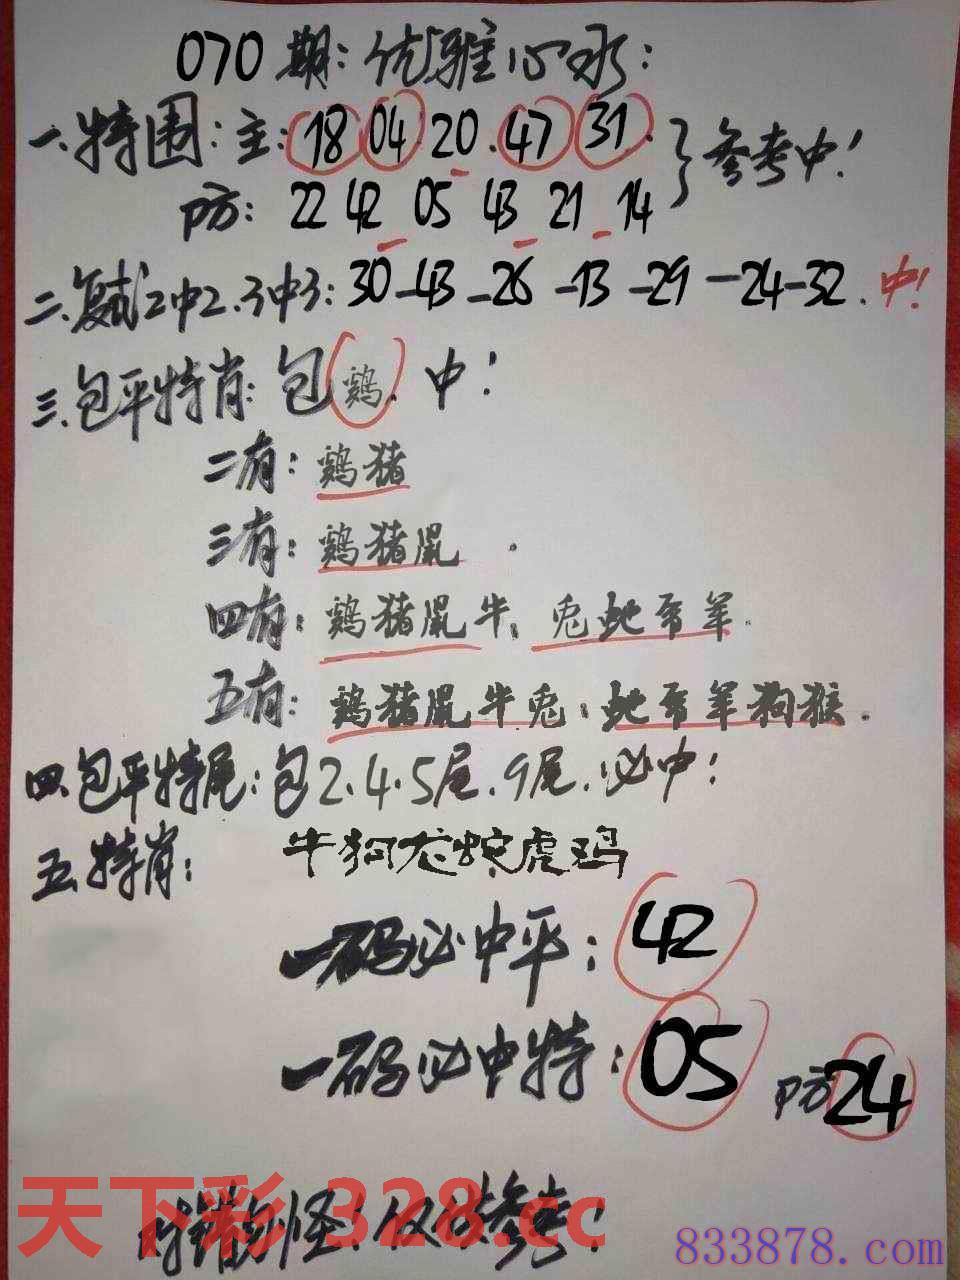 070期:优雅心水:
一.特围:主:18 04 20.47 31.}参考中!
防:22 42 05 43 21 14
二.复试2中2.3中3:30-43-26-13-29-24-32.中!
三.包平特肖:包鸡.中!
二有:鸡猪
三有:鸡猪鼠.
四有:鸡猪鼠牛.兔蛇马羊.
五有:鸡猪鼠牛兔:蛇马羊狗猴.
四.包平特尾:包2.4.5尾.9尾.必中!
五.特肖:牛狗龙蛇虎鸡
一码必中平:42
一码必中特:05 防24
天下彩 328.cc
错勿怪!仅供参考!
833878.com